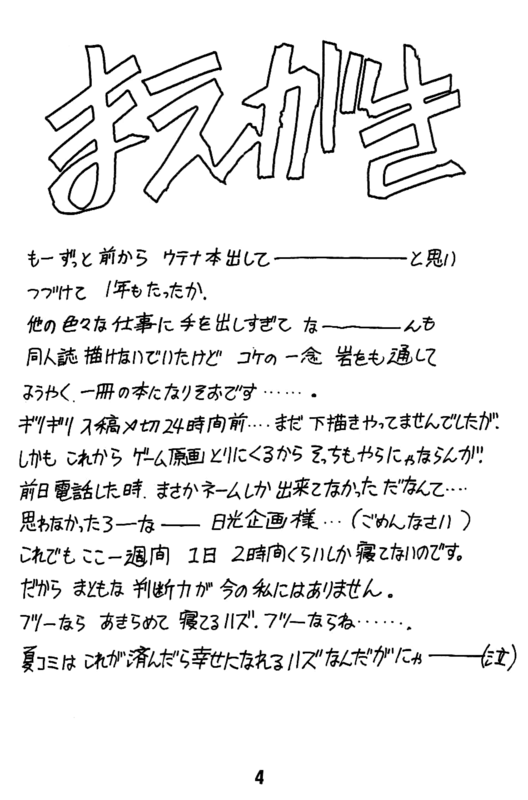 まえがき
もーずっと前から ウテナ本出して――――――と思い
つづけて 1年もたったか.
他の色々な仕事に手を出しすぎて な―――んも
同人誌描けないでいたけど コケの一念 岩をも通して
ようやく.一冊の本になりそおです……。
ギリギリ 入稿〆切24時間前….まだ 下描きやってませんでしたが.
しかも これから ゲーム原画 とりにくるから そっちもやらにゃならんが.
前日電話した時.まさかネームしか出来てなかった だなんて….
思わなかったろーな―― 日光企画様…(ごめんなさい)
これでも ここ一週間 1日 2時間くらいしか寝てないのです。
だから まともな 判断力が 今の私にはありません。
フツーなら あきらめて 寝てるハズ.フツーならね…….
夏コミは これが済んだら幸せになれるハズなんだがにゃ――(泣)
4